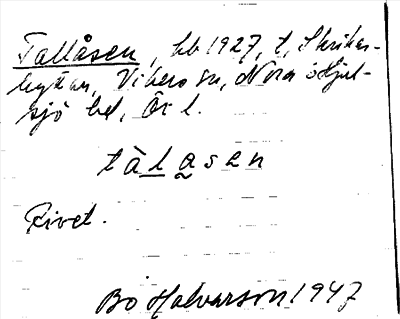 Tallåsen, hb 1927, t, Skrikar-
hyttan, Vikers sn, Nora o Hjul-
sjö bl, Ör l.
tàlasen
Rivet.
Bo Halvarson 1947